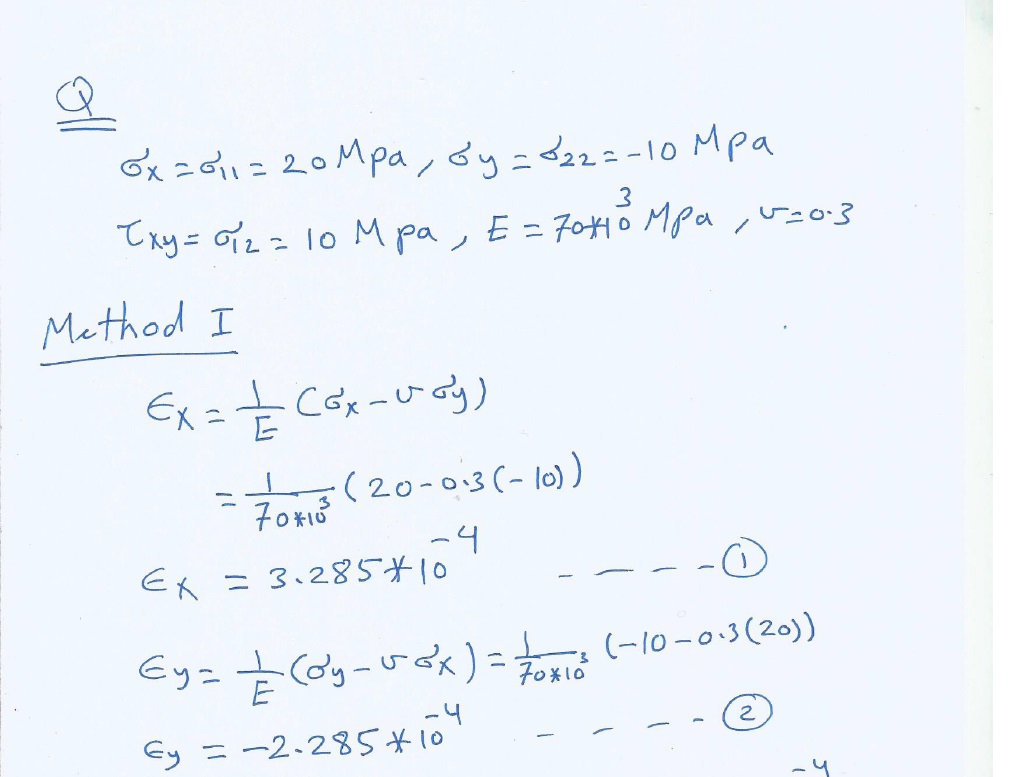 Q
σx = σ11 = 20 Mpa, σy = σ22 = -10 Mpa
τxy = σ12 = 10 Mpa, E = 70*10³ Mpa, ν = 0.3
Method I
Ex = 1/E (σx - ν σy)
= 1/70*10³ (20 - 0.3 (-10))
Ex = 3.285*10⁻⁴ - - - - ①
Ey = 1/E (σy - ν σx) = 1/70*10³ (-10 - 0.3(20))
Ey = -2.285*10⁻⁴ - - - - ②
-4